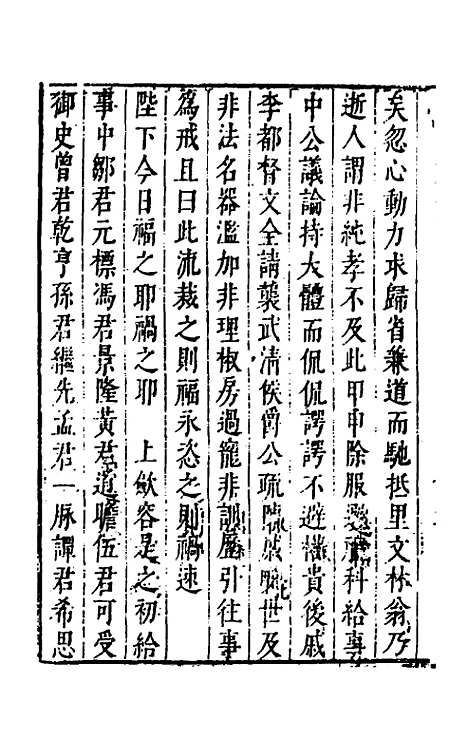 矣忽心動力求歸省兼道而馳抵里文林翁乃
逝人謂非純孝不及此甲申除服科給事
中公議論持大體而侃侃諤諤不避權貴後戚
李都督文全請襲武清侯爵公疏世及
非法名器濫加非理椒房過寵非訓屢引往事
為戒且曰此流裁之則福永恣之則禍速
陛下今日福之耶禍之耶　上歛容是之初給
事中鄒君元標馮君景隆黃君道瞻伍君可受
御史曾君乾亨孫君繼先孟君一脉譚君希思